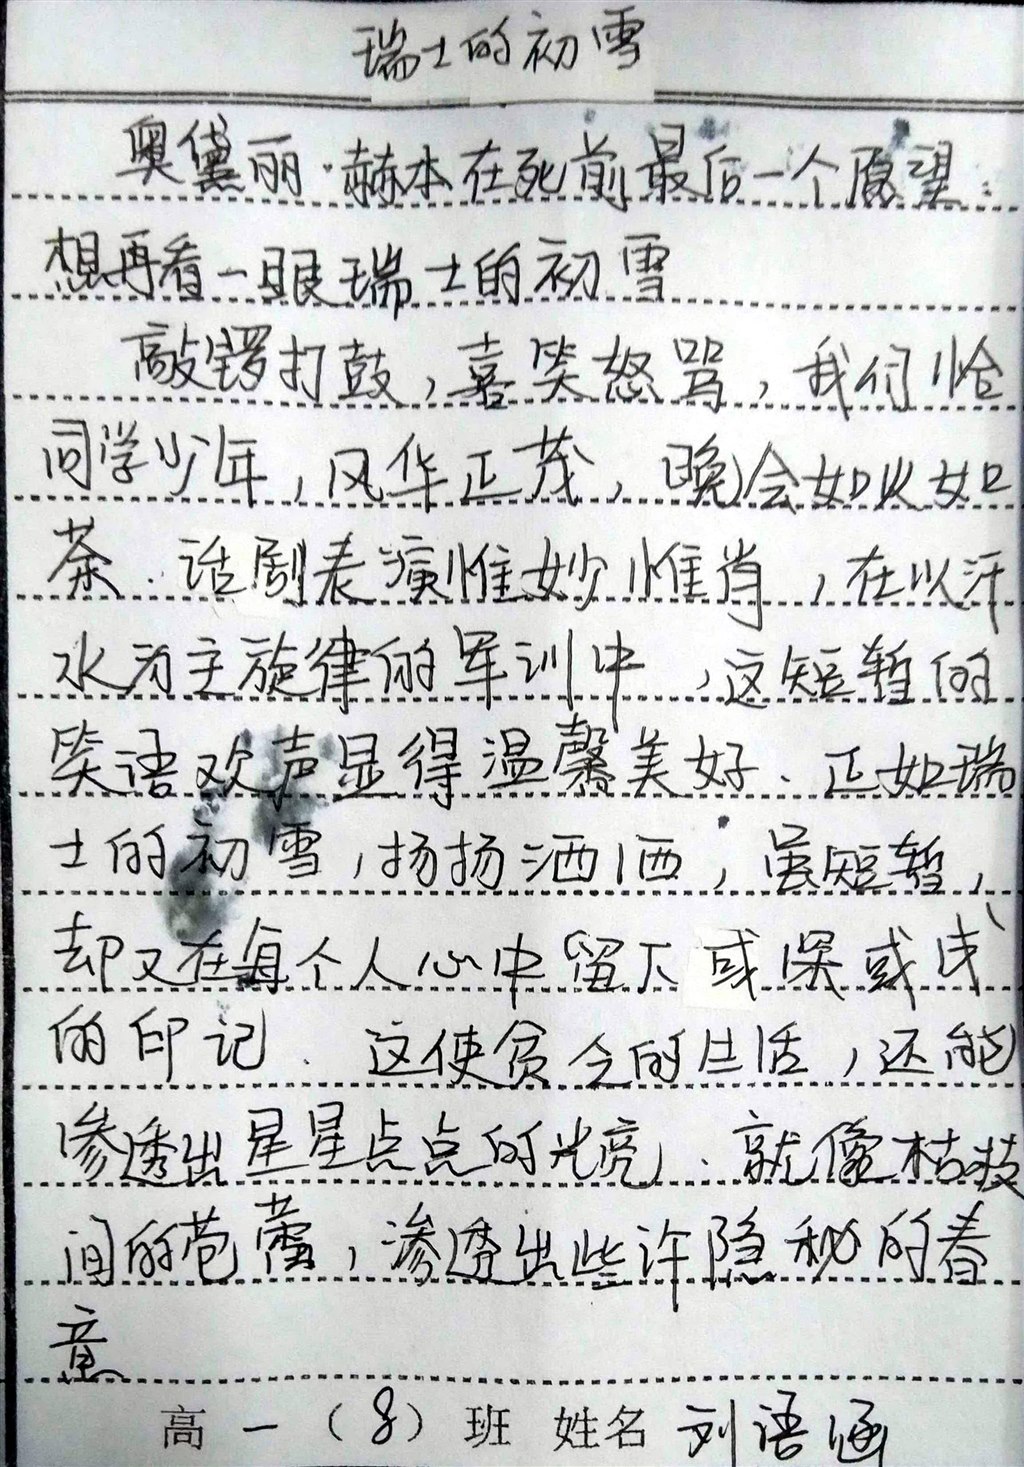 瑞士的初雪
奥黛丽·赫本在死前最后一个愿望:
想再看一眼瑞士的初雪
敲锣打鼓,喜笑怒骂,我们恰
同学少年,风华正茂,晚会如火如
茶.话剧表演惟妙惟肖,在以汗
水为主旋律的军训中,这短暂的
笑语欢声显得温馨美好.正如瑞
士的初雪,扬扬洒洒,虽短暂,
却又在每个人心中留下或深或浅
的印记.这使贫仓的生活,还能
渗透出星星点点的光亮.就像枯枝
间的苞蕾,渗透出些许隐秘的春
意
高一(8)班 姓名 刘语涵